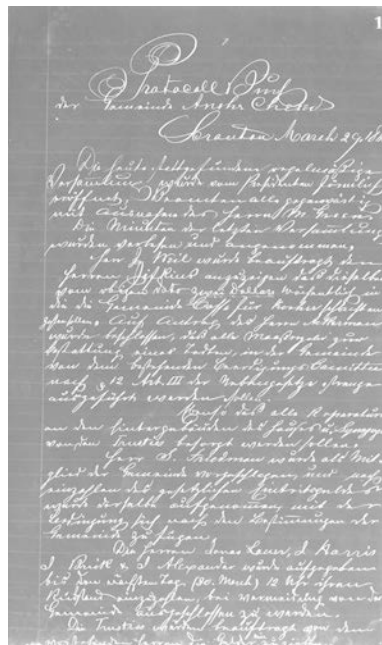 1
Protocoll Buch
der Gemeinde Anshe Chesed
Scranton March 29
Die heute stattgefundene regelmäßige
Versammlung wurde vom Präsidenten förmlich
eröffnet, Beamten alle gegenwärtig
mit Ausnahme des Herrn M.
Die Minuten der letzten Versammlung
wurden verlesen und angenommen.
Herr J. Weil wurde beauftragt dem
Herrn anzuzeigen daß derselbe
vom obigen dato zwei Dollars wöchentlich in
die Gemeinde Casse für
Auf Antrag des Herrn
wurde beschlossen, daß alle zur
Bestattung eines Todten in der Gemeinde
von dem bestehenden Beerdigungs Committee
nach § 12 Art. III der Nebengesetze strenge
ausgeführt werden sollen.
daß alle Reparaturen
an den Hintergebäuden des Hauses
von den Trustees besorgt werden sollen.
Herr S. Friedman wurde als Mit
glied der Gemeinde vorgeschlagen, und nach
einzahlen des gesetzlichen Eintrittsgeldes
wurde derselbe aufgenommen mit der
Bedingung sich nach den Bestimmungen der
Gemeinde zu fügen.
Die Herren Jonas Lauer, J. Harris
J. Brück & J. Alexander wurde aufgegeben
bis den nächsten Tag (30. March) 12 Uhr ihren
Rückstand einzuzahlen, bei Vermeidung von der
Gemeinde ausgeschlossen zu werden.
Die Trustees wurden beauftragt von den